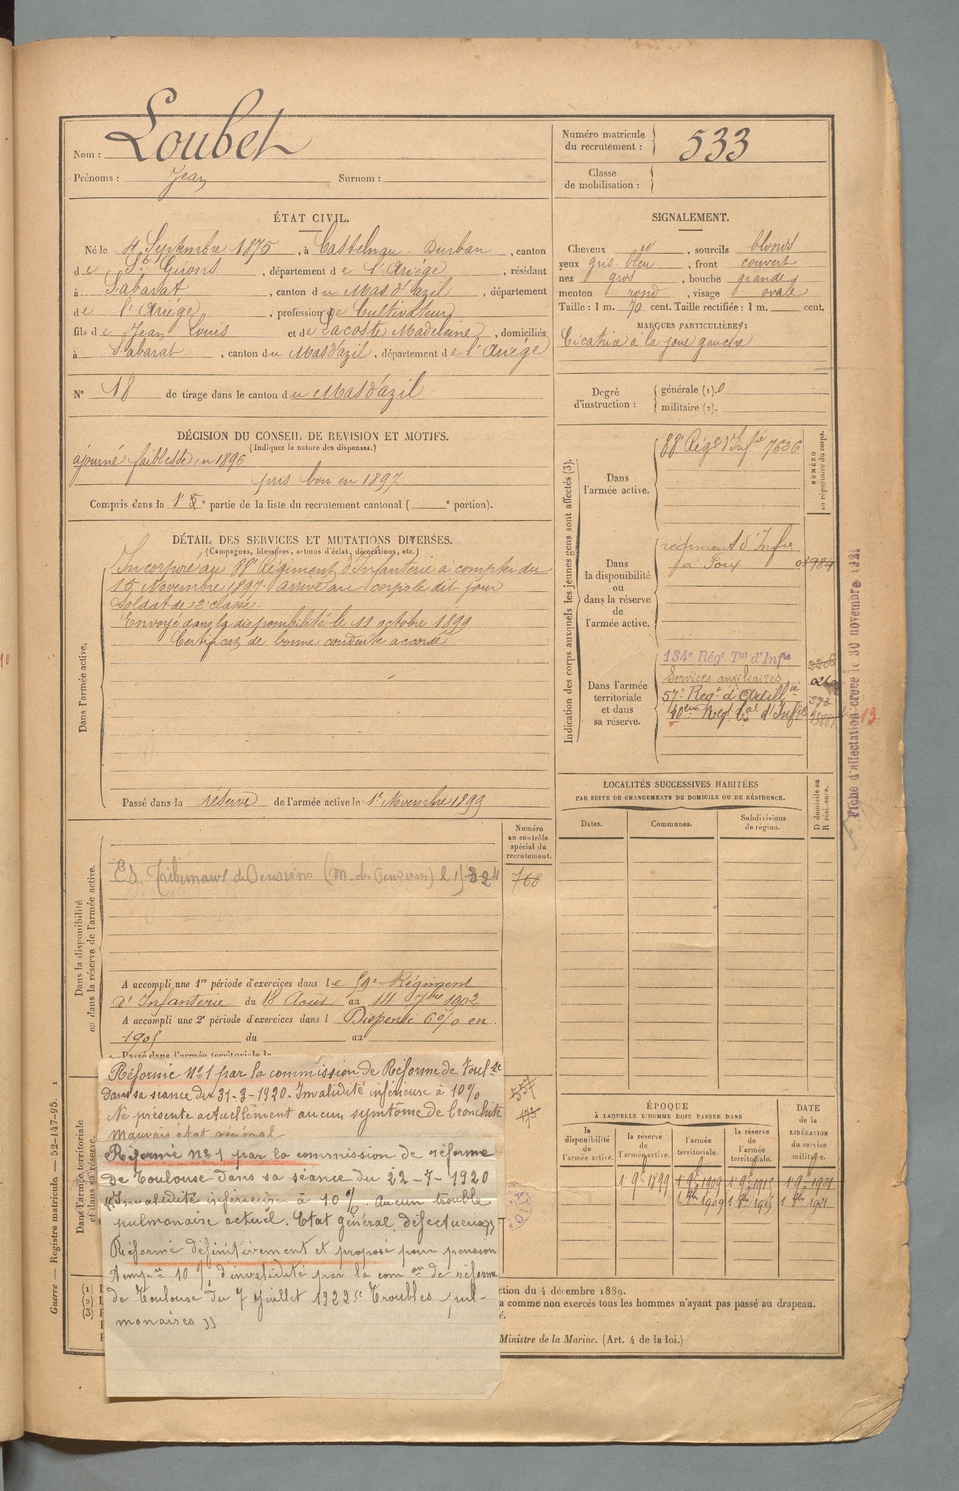 Nom : Loubet
Prénoms : Jean Surnom :
Numéro matricule du recrutement : 533
Classe de mobilisation :
ÉTAT CIVIL.
Né le 4 Septembre 1875, à Castelnau-Durban, canton
de St Girons, département de l'Ariége, résidant
à Sabarat, canton du Mas d'azil, département
de l'Ariége, profession de Cultivateur
fils de Jean Louis et de Lacoste Madeleine, domiciliés
à Sabarat, canton du Mas d'azil, département de l'Ariége
N° 18 de tirage dans le canton du Mas d'azil
SIGNALEMENT.
Cheveux et, sourcils blonds
yeux gris-bleu, front couvert
nez gros, bouche grande
menton rond, visage ovale
Taille : 1 m. 70 cent. Taille rectifiée : 1 m. cent.
MARQUES PARTICULIÈRES :
Cicatrice à la joue gauche
Degré d'instruction : générale (1). 0
militaire (2).
DÉCISION DU CONSEIL DE REVISION ET MOTIFS.
(Indiquer la nature des dispenses.)
ajourné faiblesse en 1896
puis bon en 1897
Compris dans la 1e partie de la liste du recrutement cantonal ( e portion).
DÉTAIL DES SERVICES ET MUTATIONS DIVERSES.
(Campagnes, blessures, actions d'éclat, décorations, etc.)
Dans l'armée active.
Incorporé au 88e Régiment d'Infanterie à compter du
15 Novembre 1897 arrivé au corps le dit jour
Soldat de 2e classe
Envoyé dans la disponibilité le 11 octobre 1899
Certificat de bonne conduite accordé
Passé dans la réserve de l'armée active le 1er Novembre 1899
Indication des corps auxquels les jeunes gens sont affectés (3).
NUMÉRO au répertoire du corps.
Dans l'armée active.
88e Régt d'Infie 7636
Dans la disponibilité ou dans la réserve de l'armée active.
régiment d'Infie
à Foix
Dans l'armée territoriale et dans sa réserve.
134e Régt Tal d'Infie
Services auxiliaires
57e Régt d'Artillie
Fiche d'affectation créée le 30 novembre 1921
13
LOCALITÉS SUCCESSIVES HABITÉES
PAR SUITE DE CHANGEMENTS DE DOMICILE OU DE RÉSIDENCE.
Dates. Communes. Subdivisions de région.
D domicile ou R résidence.
Dans la disponibilité ou dans la réserve de l'armée active.
Numéro au contrôle spécial du recrutement.
768
Tribunaux de Pensions (M. des Pensions)
A accompli une 1re période d'exercices dans le 59e Régiment
d'Infanterie du 18 Août au 14 7bre 1902
A accompli une 2e période d'exercices dans l Dispensé 6% en
1905 du au
Dans l'armée territoriale et dans sa réserve.
Réformé N°1 par la commission de Réforme de Toulse
dans sa séance du 31-3-1920. Invalidité inférieure à 10%
Ne présente actuellement aucun symptôme de bronchite
Mauvais état général
Réformé N°1 par la commission de réforme
de Toulouse dans sa séance du 22-7-1920
"Invalidité inférieure à 10%. Aucun trouble
pulmonaire actuel. Etat général défectueux"
Réformé définitivement et proposé pour pension
tempre 10% d'invalidité par la comon de réforme
de Toulouse du 7 Juillet 1922 "Troubles pul-
monaires"
ÉPOQUE
À LAQUELLE L'HOMME DOIT PASSER DANS
DATE DE LA LIBÉRATION du service militaire.
la disponibilité de l'armée active. la réserve de l'armée active. l'armée territoriale. la réserve de l'armée territoriale.
1 9e 1899 1 9e 1909 1 9e 1915 1 9e 1921
Guerre — Registre matricule. — 52-147-95. 1
(1)
(2)
(3)
ction du 4 décembre 1889.
a comme non exercés tous les hommes n'ayant pas passé au drapeau.
Ministre de la Marine. (Art. 4 de la loi.)